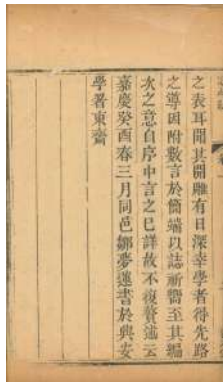 之表耳聞其開雕有日深幸學者得先路
之導因附數言於簡端以誌所嚮至其編
次之意自序中言之已詳故不復贅述云
嘉慶癸酉春三月同邑鄒夢蓮書於興安
學署東齋